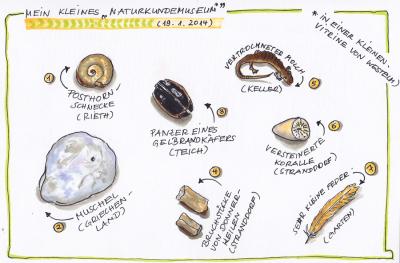 MEIN KLEINES „NATURKUNDEMUSEUM"*
(19.1.2014)
* IN EINER KLEINEN
VITRINE VON WESTEN
1
POSTHORN-
SCHNECKE
(RIETH)
2
MUSCHEL
(GRIECHEN-
LAND)
3
PANZER EINES
GELBRANDKÄFERS
(TEICH)
4
BRUCHSTÜCKE
VON DONNER-
KEILEN
(STRANDDORF)
5
VERTROCKNETER MOLCH
(KELLER)
6
VERSTEINERTE
KORALLE
(STRANDDORF)
7
SEHR KLEINE FEDER
(GARTEN)